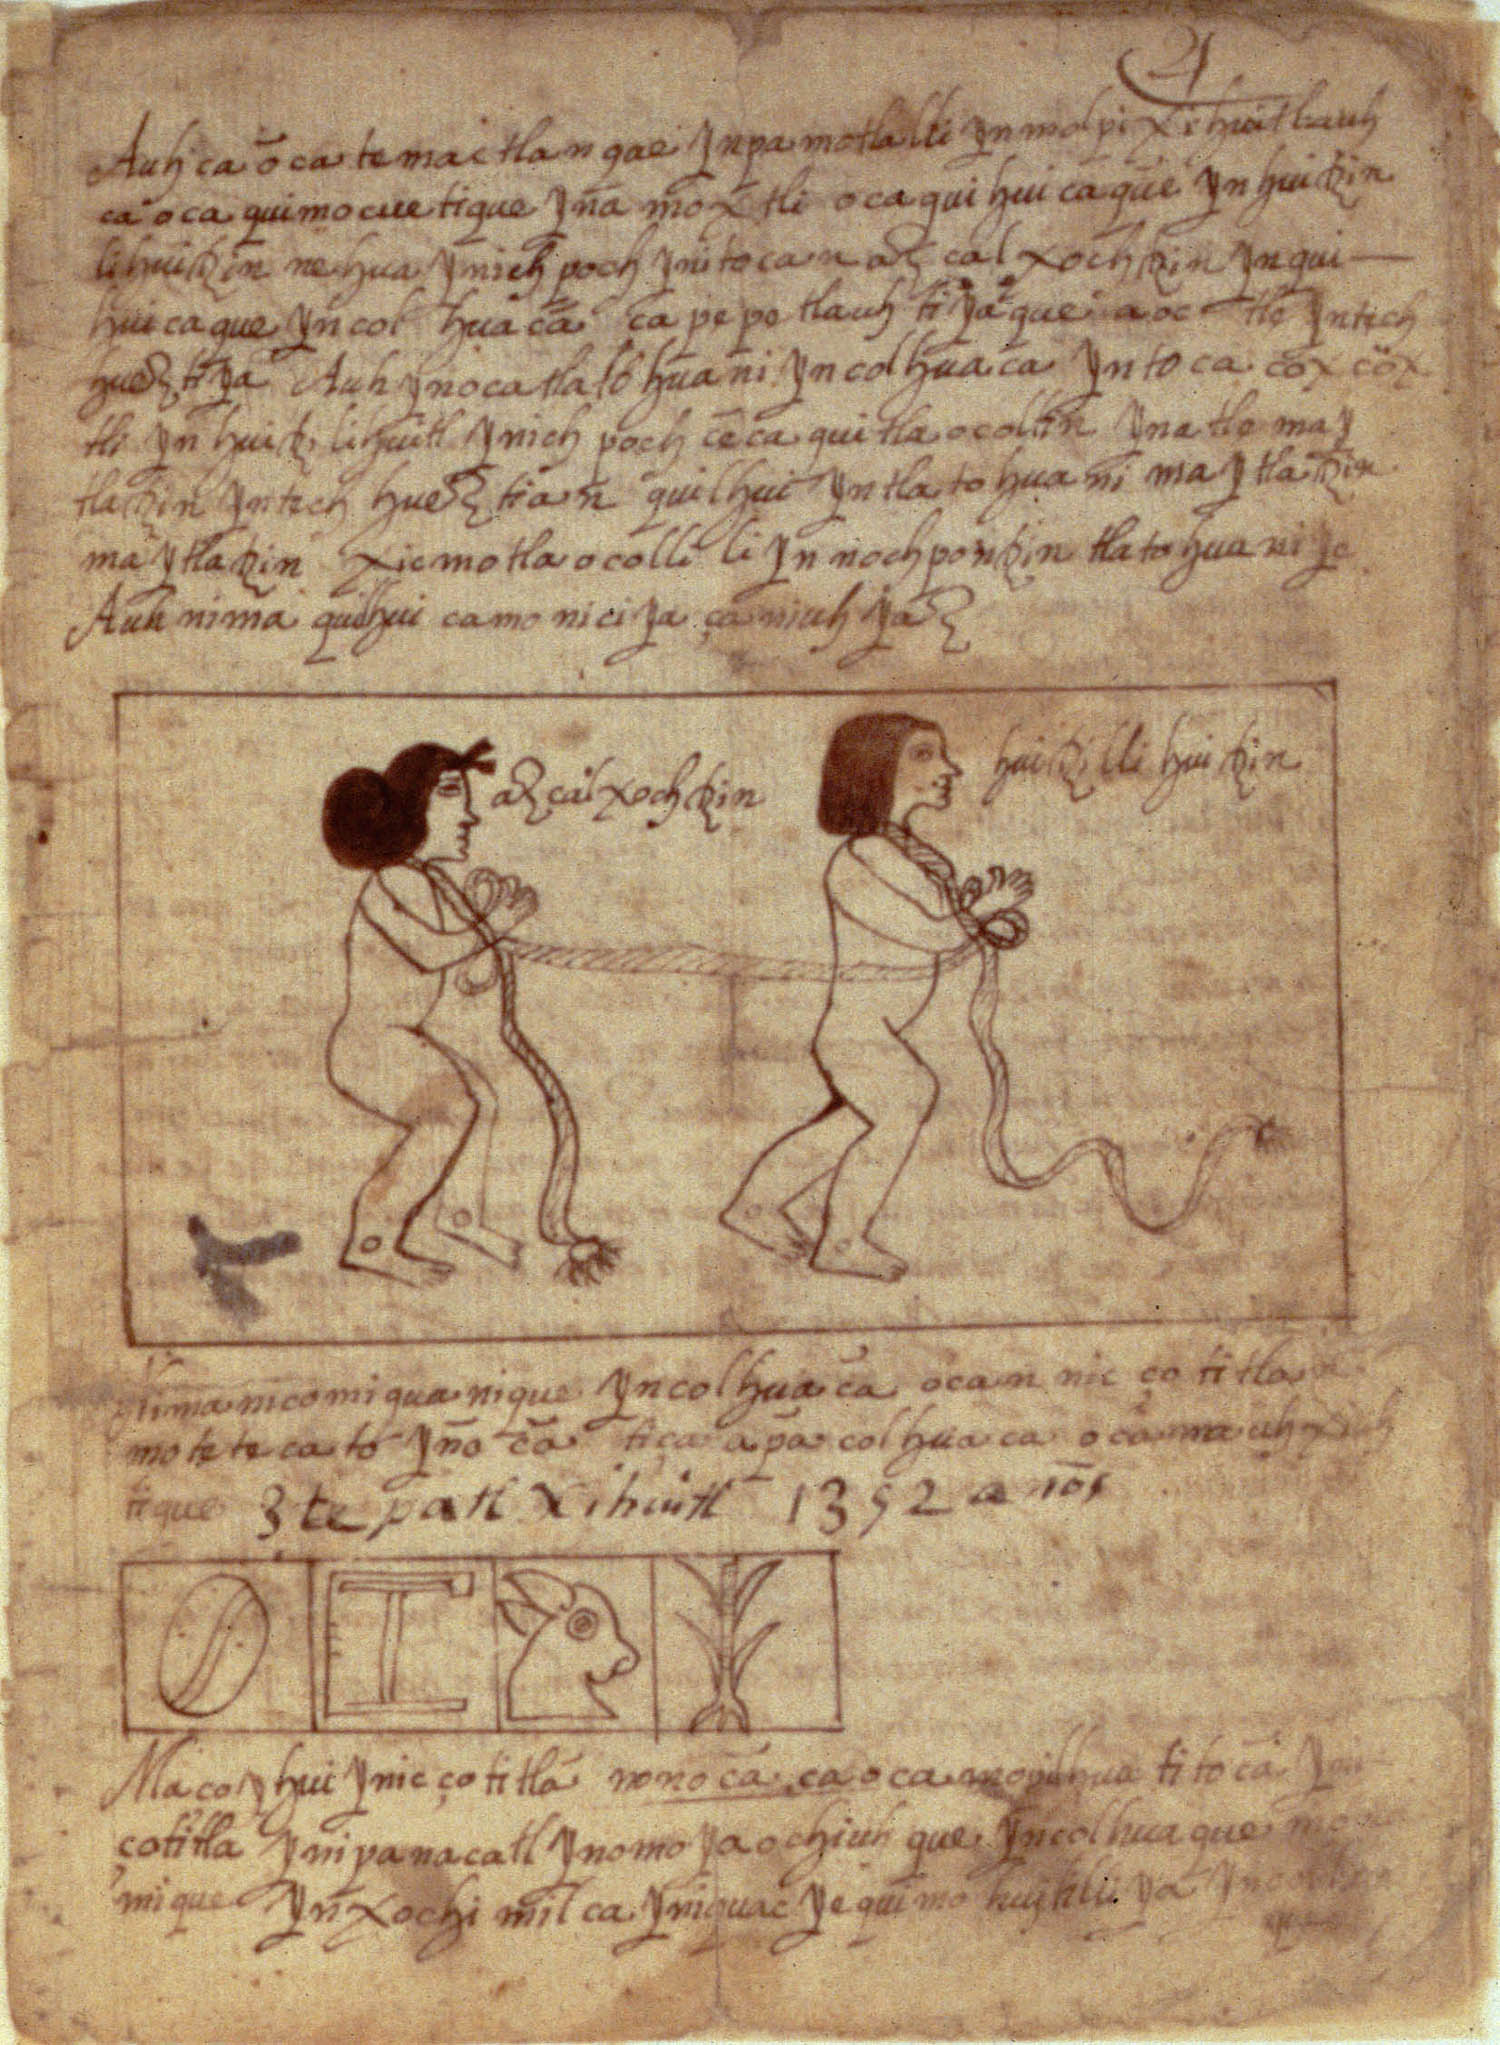 Auh ca õca temaictlan qae ynpa motlalli yn molpi xihuitl auh
ca oca quimocuetique yña moxtli oca quihuicaque yn huitzin
lihuitzin nehua ynich poch ynitocan azcalxochtzin yn qui
huicaque yn colhuacã ca pepetlauh tiyaque aoc tle yntech
hueztiya Auh ynoca tlatohuani yn colhuaca yntoca coxcox
tli yn huitzilihuitl ynich poch cēca quitlaocoltin yn atle may
tlatzin yntech hueztian quilhui yn tlatohuani ma ytlatzin
ma ytlatzin xicmotlaocollili yn nochpontzin tlatohuaniye
Auh nima quilhui camo niciya ça niuh yaz
azcalxochtzin
huitzillihuitzin
nima nicomiquanique yn colhuacã ocan nic çotitla
motetecato yño cã tiçaapã colhuaca oca nauhxiuh
tique 3 tecpatl xihuitl 1352 años
Macoyhui ynic çotitlã nonocã ca oca mopilhuatitocã yni
çotitla ynipa nacatl ynomo yaochiuhque yn colhuaque
mique yn xochimilca yniquac ye quimo